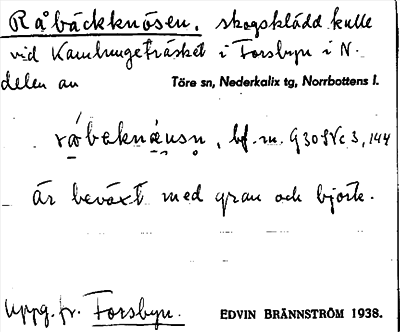 Råbäckknösen, skogsklädd kulle
vid Kamlungeträsket i Forsbyn i N.
delen av Töre sn, Nederkalix tg, Norrbottens l.
råbekna̤usn, bf. m. G30SVc3, 144
Är beväxt med gran och björk.
Uppg. fr. Forsbyn. EDVIN BRÄNNSTRÖM 1938.